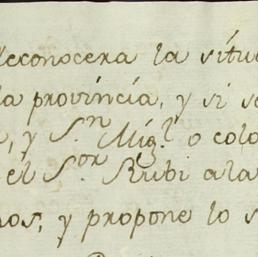 Reconocera la situ
la provincia, y si se
, y S.n Mig.l o colo
el S.or Rubi a la
nos, y propone lo s